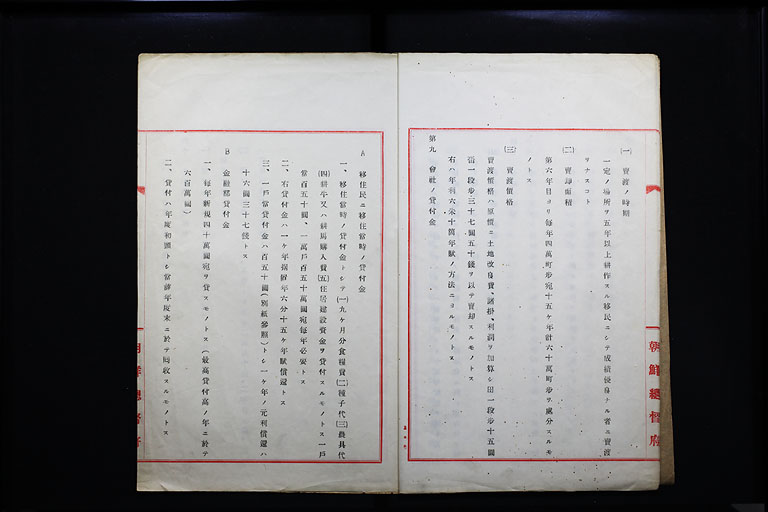 (一) 賣渡ノ時期
一定ノ場所ヲ五年以上耕作スル移民ニシテ成績優良ナル者ニ賣渡
リナスコト
(二) 賣却面積
第六年目ヨリ每年四萬町步宛十五ヶ年計六十萬町步ヲ處分スルモ
ノトス
(三) 賣渡價格
賣渡價格ハ原價ニ土地改良費、諸掛、利潤ヲ加算シ田一段步十五圓
畓一段步三十七圓五十錢ヲ以テ賣却スルモノトス
右ハ年利六朱十箇年賦ノ方法ニヨルモノトス
第九 會社ノ貸付金
朝鮮總督府
A 移住民ニ移住當時ノ貸付金
一、移住當時ノ貸付金トシテ(一)九ヶ月分食糧費(二)種子代(三)農具代
(四)耕牛又ハ耕馬購入費(五)住居建設資金ヲ貸付スルモノトス一戶
當百五十圓、一萬戶百五十萬圓宛每年必要トス
二、右貸付金ハ一ヶ年据置年六分十五ヶ年賦償還トス
三、一戶當貸付金ハ百五十圓(別紙參照)トシ一ヶ年ノ元利償還ハ
十六圓三十七錢トス
B 金融部貸付金
一、每年新規四十萬圓宛ヲ貸スモノトス(最高貸付高ノ年ニ於テ
六百萬圓)
二、貸付ハ年度初頭トシ當該年度末ニ於テ回收スルモノトス
朝鮮總督府